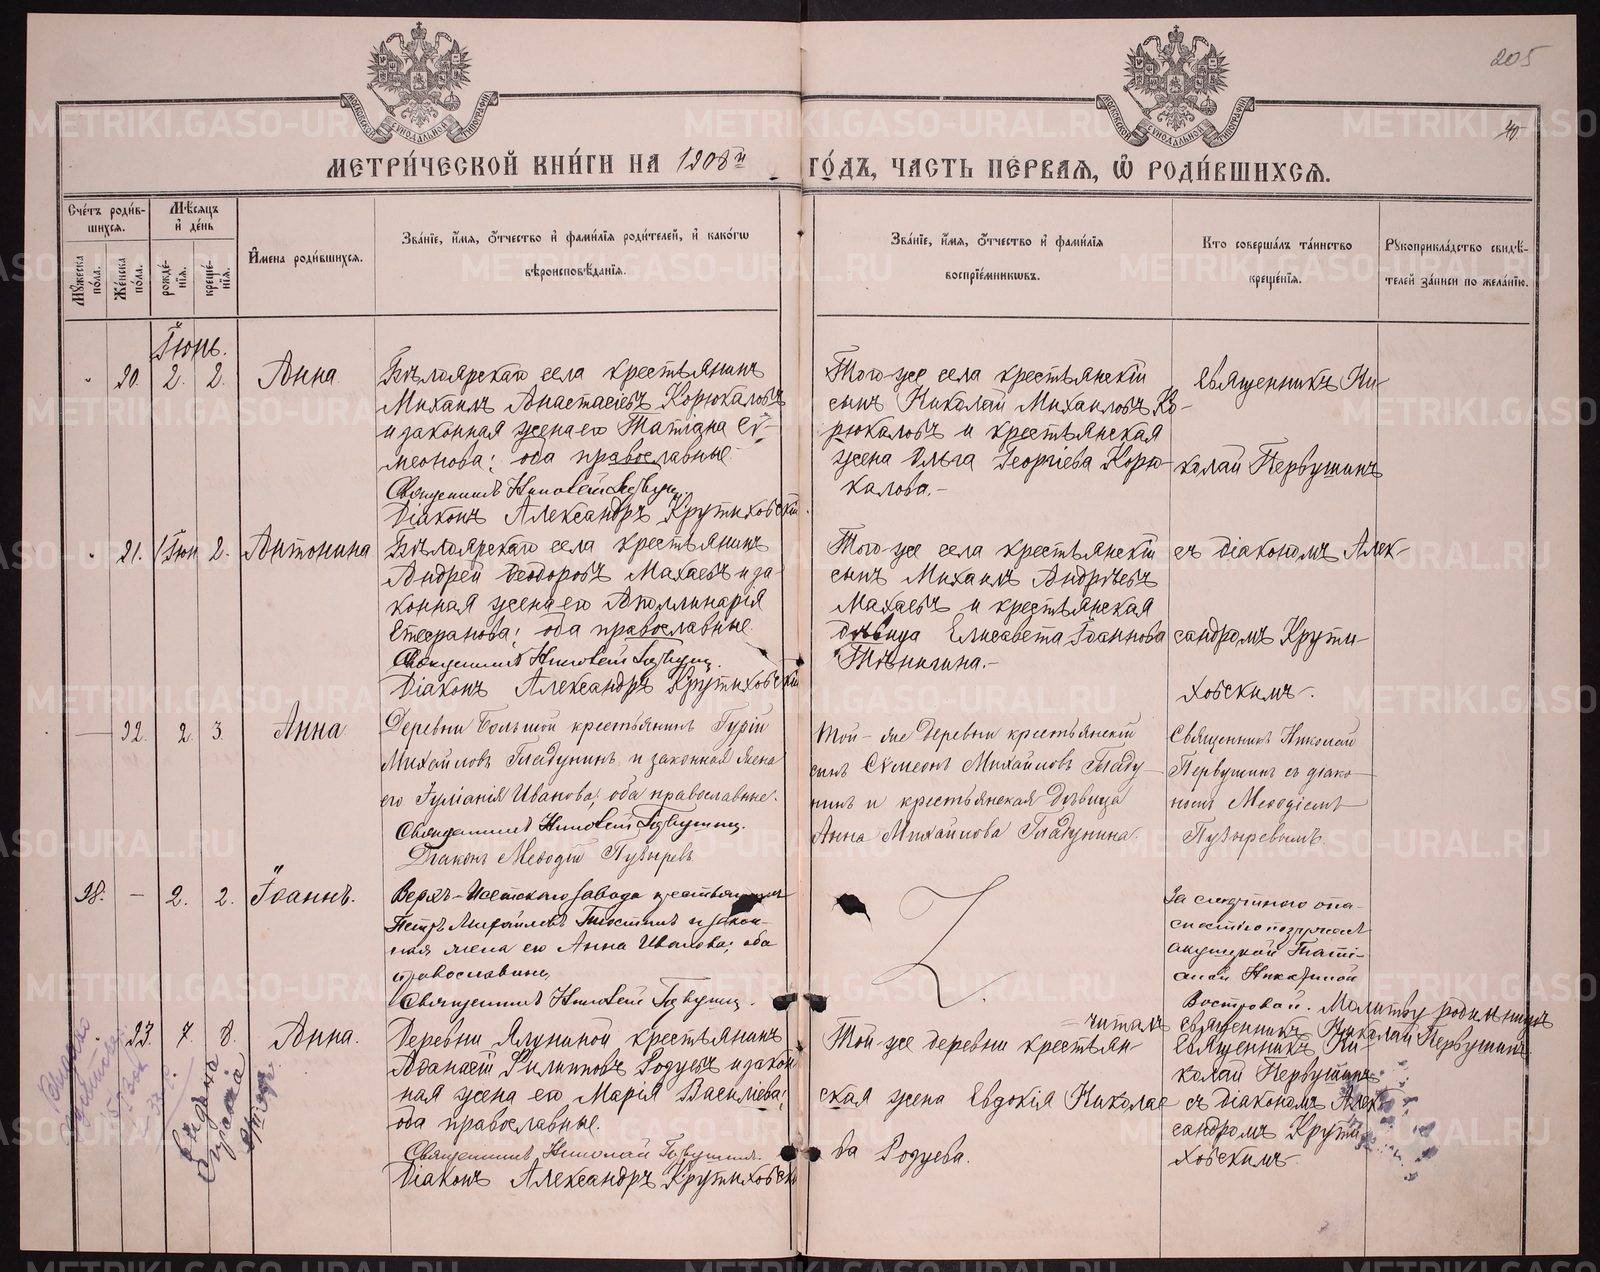 205
40
МОСКОВСКОЙ СѴНОДАЛЬНОЙ ТИПОГРАФІИ
МОСКОВСКОЙ СѴНОДАЛЬНОЙ ТИПОГРАФІИ
МЕТРИ́ЧЕСКОЙ КНИ́ГИ НА 1908й ГО́ДЪ, ЧАСТЬ ПЕ́РВАЯ, Ѡ҆ РОДИ́ВШИХСЯ.
Сче́тъ роди́в-
шихся.
Мѣ́сяцъ
и҆ де́нь
Му́жеска по́ла.
Же́нска по́ла.
рожде́-нїя.
креще́-нїя.
И҆мена роди́вшихся.
Зва́нїе, и҆́мя, ѻ҆́тчество и҆ фами́лїя роди́телей, и҆ како́гѡ
вѣроисповѣ́данїя.
Зва́нїе, и҆́мя, ѻ҆́тчество и҆ фами́лїя
воспрїе́мниковъ.
Кто соверша́лъ та́инство
креще́нїя.
Рукоприкла́дство свидѣ́-
телей за́писи по жела́нїю.
Іюнь.
20. 2. 2. Анна.
Бѣлоярскаго села крестьянинъ
Михаилъ Анастасіевъ Корюкаловъ
и законная жена его Татіана Сѵ-
меонова; оба православные
Священникъ Николай Первушинъ
Діаконъ Александръ Крутиховскій.
Того-же села крестьянскій
сынъ Николай Михаиловъ Ко-
рюкаловъ и крестьянская
жена Ольга Георгіева Корю-
калова.-
Священникъ Ни-
колай Первушинъ
21. 1 Іюн 2. Антонина
Бѣлоярскаго села крестьянинъ
Андрей Ѳеодоровъ Махаевъ и за-
конная жена его Аполлинарія
Стефанова; оба православные
Священникъ Николай Первушинъ.
Діаконъ Александръ Крутиховскій
Того-же села крестьянскій
сынъ Михаилъ Андреевъ
Махаевъ и крестьянская
дѣвица Елисавета Іоаннова
съ діакономъ Алек-
сандромъ Крути-
ховскимъ.
22. 2 3. Анна
Деревни Большой крестьянинъ Гурій
Михайловъ Гладунинъ и законная жена
его Іуліанія Иванова; оба православные.
Священникъ Николай Первушинъ.
Діаконъ Меѳодій Пузыревъ
Той-же деревни крестьянскій
сынъ Сѵмеонъ Михайловъ Гладу-
нинъ и крестьянская дѣвица
Анна Михайлова Гладунина.
Священникъ Николай
Первушинъ съ діако-
номъ Меѳодіемъ
Пузыревымъ.
28. - 2. 2. Іоаннъ.
Верхъ-Исетскаго завода крестьянинъ
Петръ Михайловъ
и закон-
ная жена его Анна Иванова; оба
православные
Священникъ Николай Первушинъ.
За смертною опа-
сностію погруженъ
акушеркой Тати-
аной
Молитву родильницѣ
читалъ священникъ Николай Первушинъ.
23. 7. 8. Анна.
Деревни Ялуниной крестьянинъ
Аѳанасій Филипповъ Родуевъ и закон
ная жена его Марія Василіева;
оба православные.
Священникъ Николай Первушинъ.
Діаконъ Александръ Крутиховск
Той-же деревни крестьян-
ская жена Евдокія Николае
ва Родуева.
Священникъ Ни-
колай Первушинъ
съ діакономъ Алек-
сандромъ Крути-
ховскимъ
METRIKI.GASO-URAL.RU